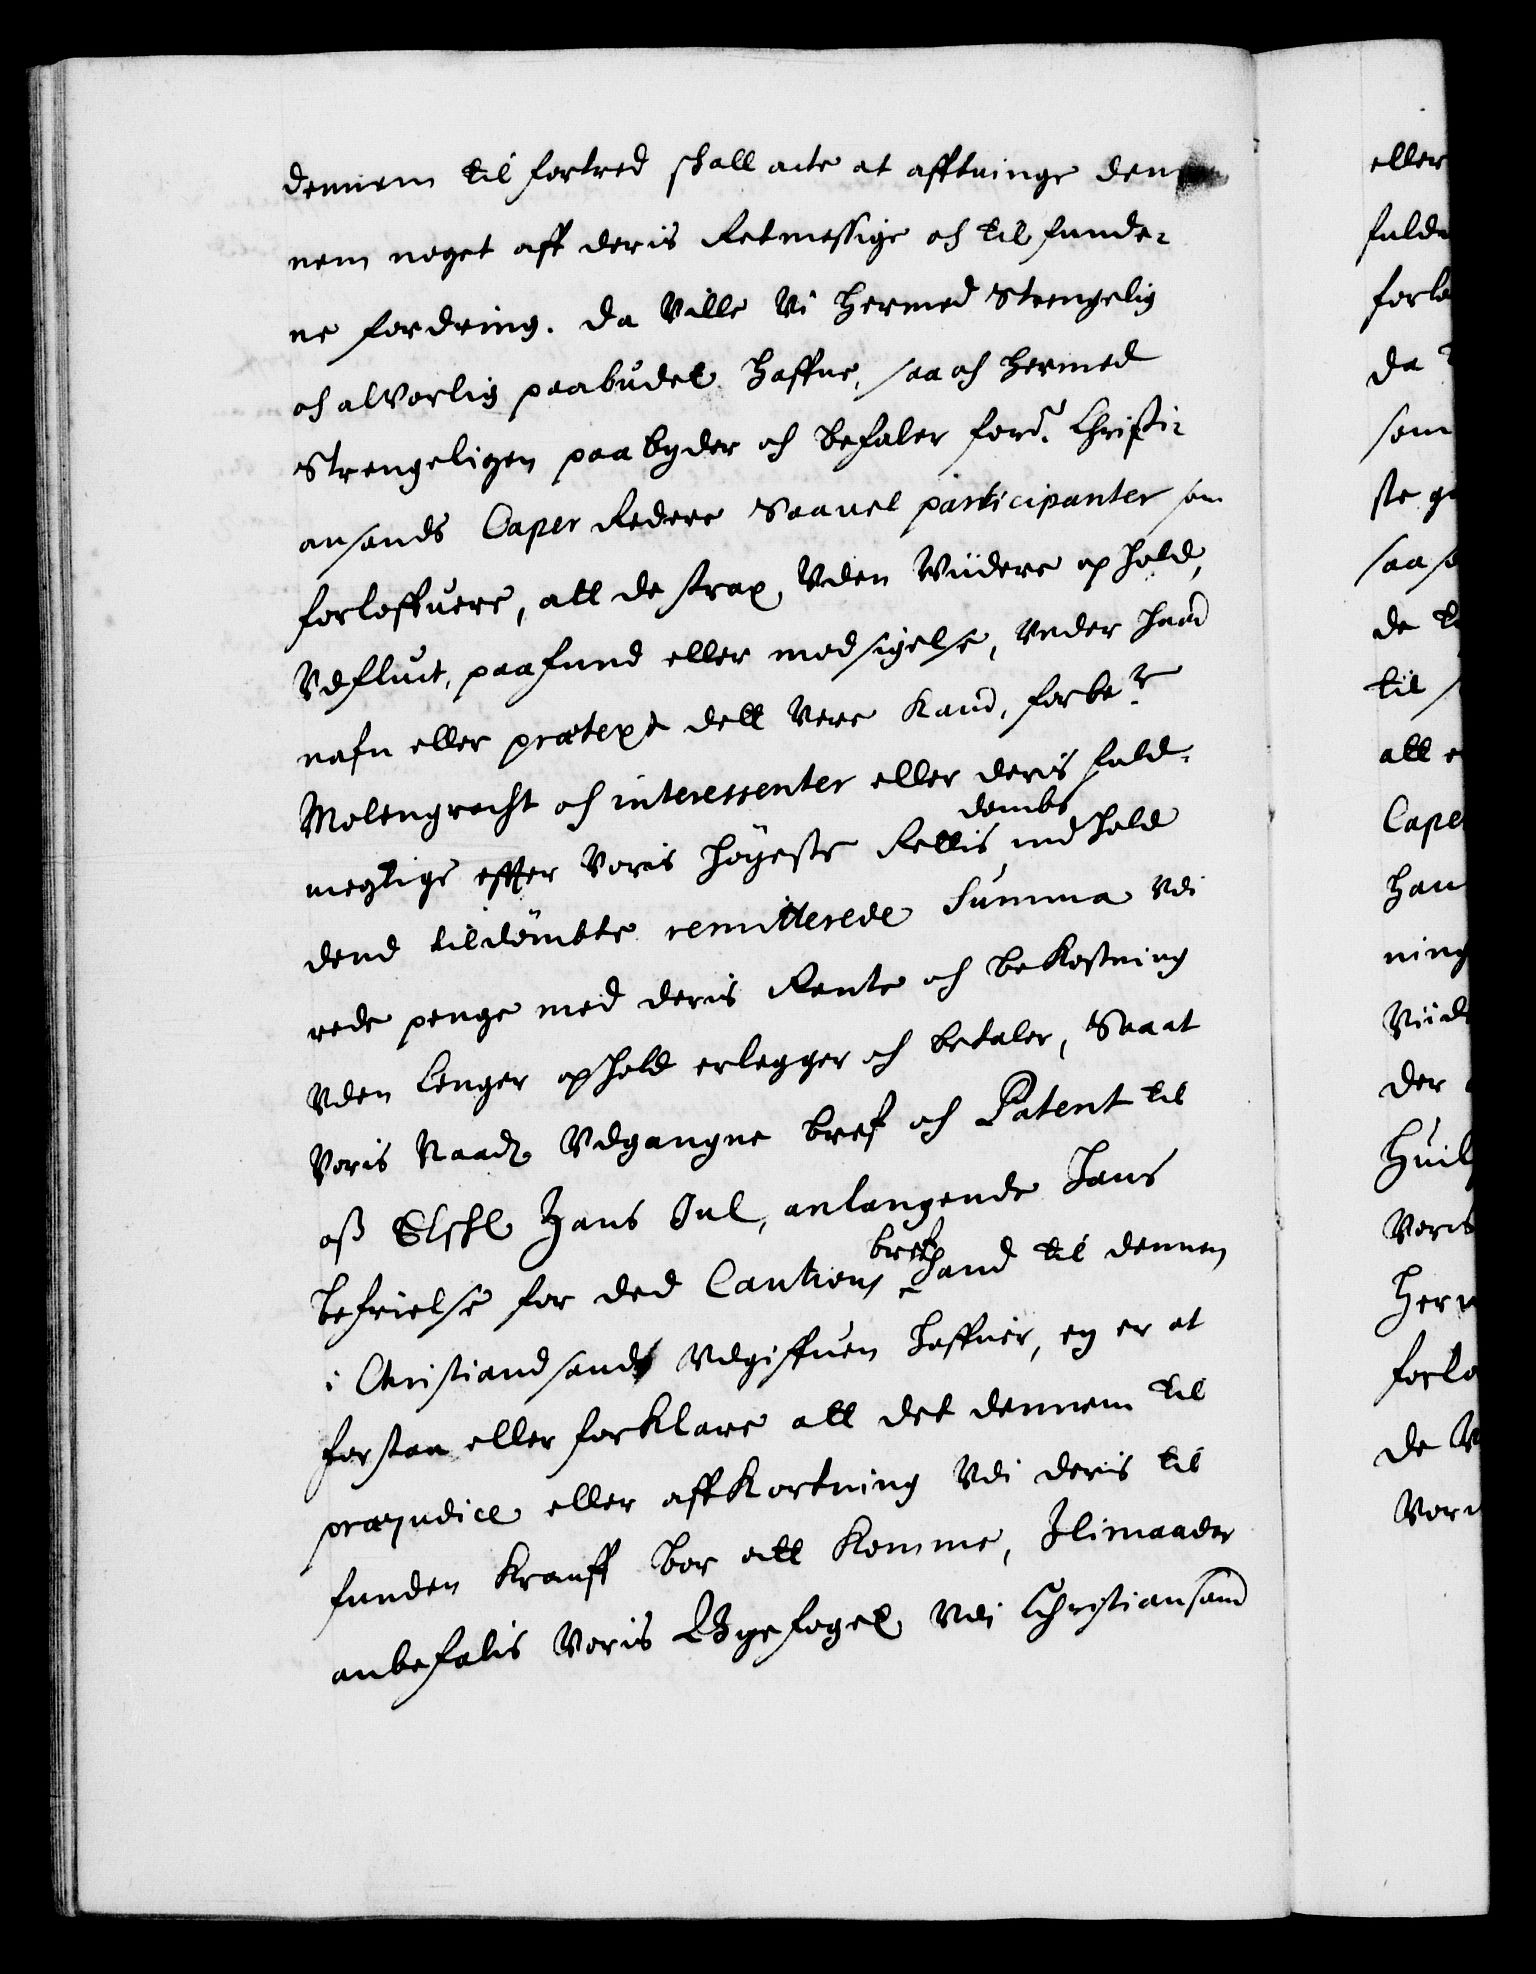 dennem til fortred skall acte at afftuinge den
nem noget aff deris Retmessige och til funde-
ne fordring. da Ville Vi hermed Strengelig
och alvorlig paabudet haffue, saa och hermed
Strengeligen paabyder och befaler ford. Christi-
ansands Caper Redere Saauel participanter som
forloffuere, att de strax, Vden Viidere ophold,
Vdfluct, paafund eller modsigelse, Vnder huad
nafn eller prætext dett Vere Kand, forbe.te
Molengracht och interessenter eller deris fuld-
megtige effter Voris höyeste Rettis dombs indhold
dend tildömbte remitterede Summa Vdi
rede penge med deris Rente och bekostning
Vden lenger ophold erlegger och betaler, Saa at
Voris Naad. Vdgangne bref och Patent til
oß Elskl. Hans Jul, anlangende hans
befrielse for ded Cautions bref hand til dennem
i Christiandsands Vdgiffuen haffuer, ey er at
forstaa eller forklare att det dennem til
præjudice eller affkortning Vdi deris til
funden kraff bør att komme, Jlimaader
anbefalis Voris Byefoget Vdi Christiansand
eller
forlo
da
som
ste
saa
de
til
att
Cape
han
ning
der
Voris
forlo
de